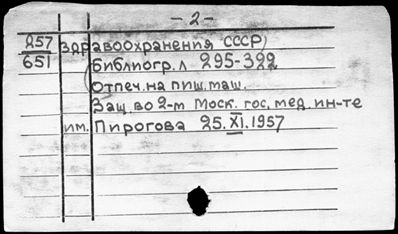 - 2 -
857 здравоохранения СССР)
651 (библиогр. л 295-322
(Отпеч. на пиш. маш.
Защ. во 2-м Моск. гос. мед. ин-те
им. Пирогова 25.XI.1957